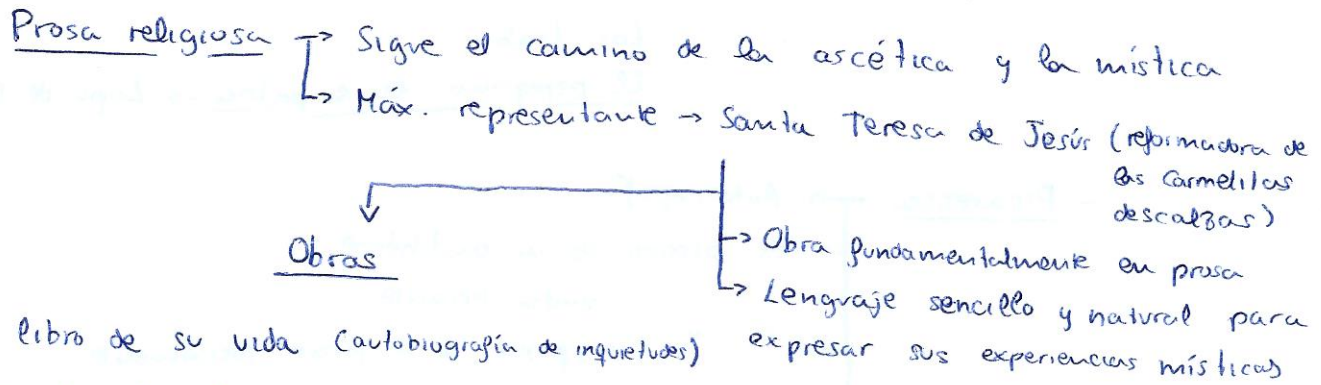 Prosa religiosa → Sigue el camino de la ascética y la mística
↳ Máx. representante → Santa Teresa de Jesús (reformadora de
las Carmelitas
descalzas)
Obras
→ Obra fundamentalmente en prosa
↳ Lenguaje sencillo y natural para
expresar sus experiencias místicas
libro de su vida (autobiografía de inquietudes)